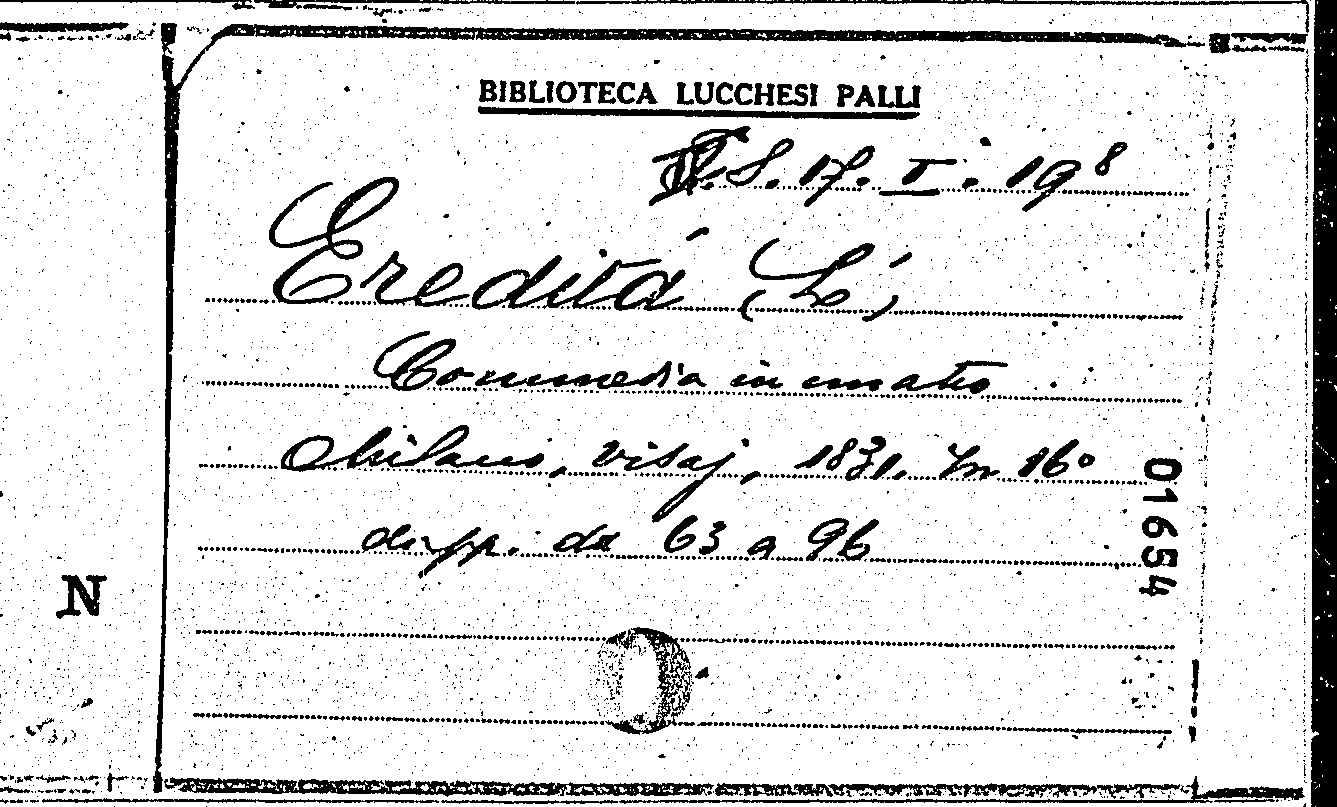 BIBLIOTECA LUCCHESI PALLI
S. 17. I. 19⁸
Eredità (L')
Commedia in un atto
Milano, Visaj, 1831. In 16°
da pp. da 63 a 96
01654
N